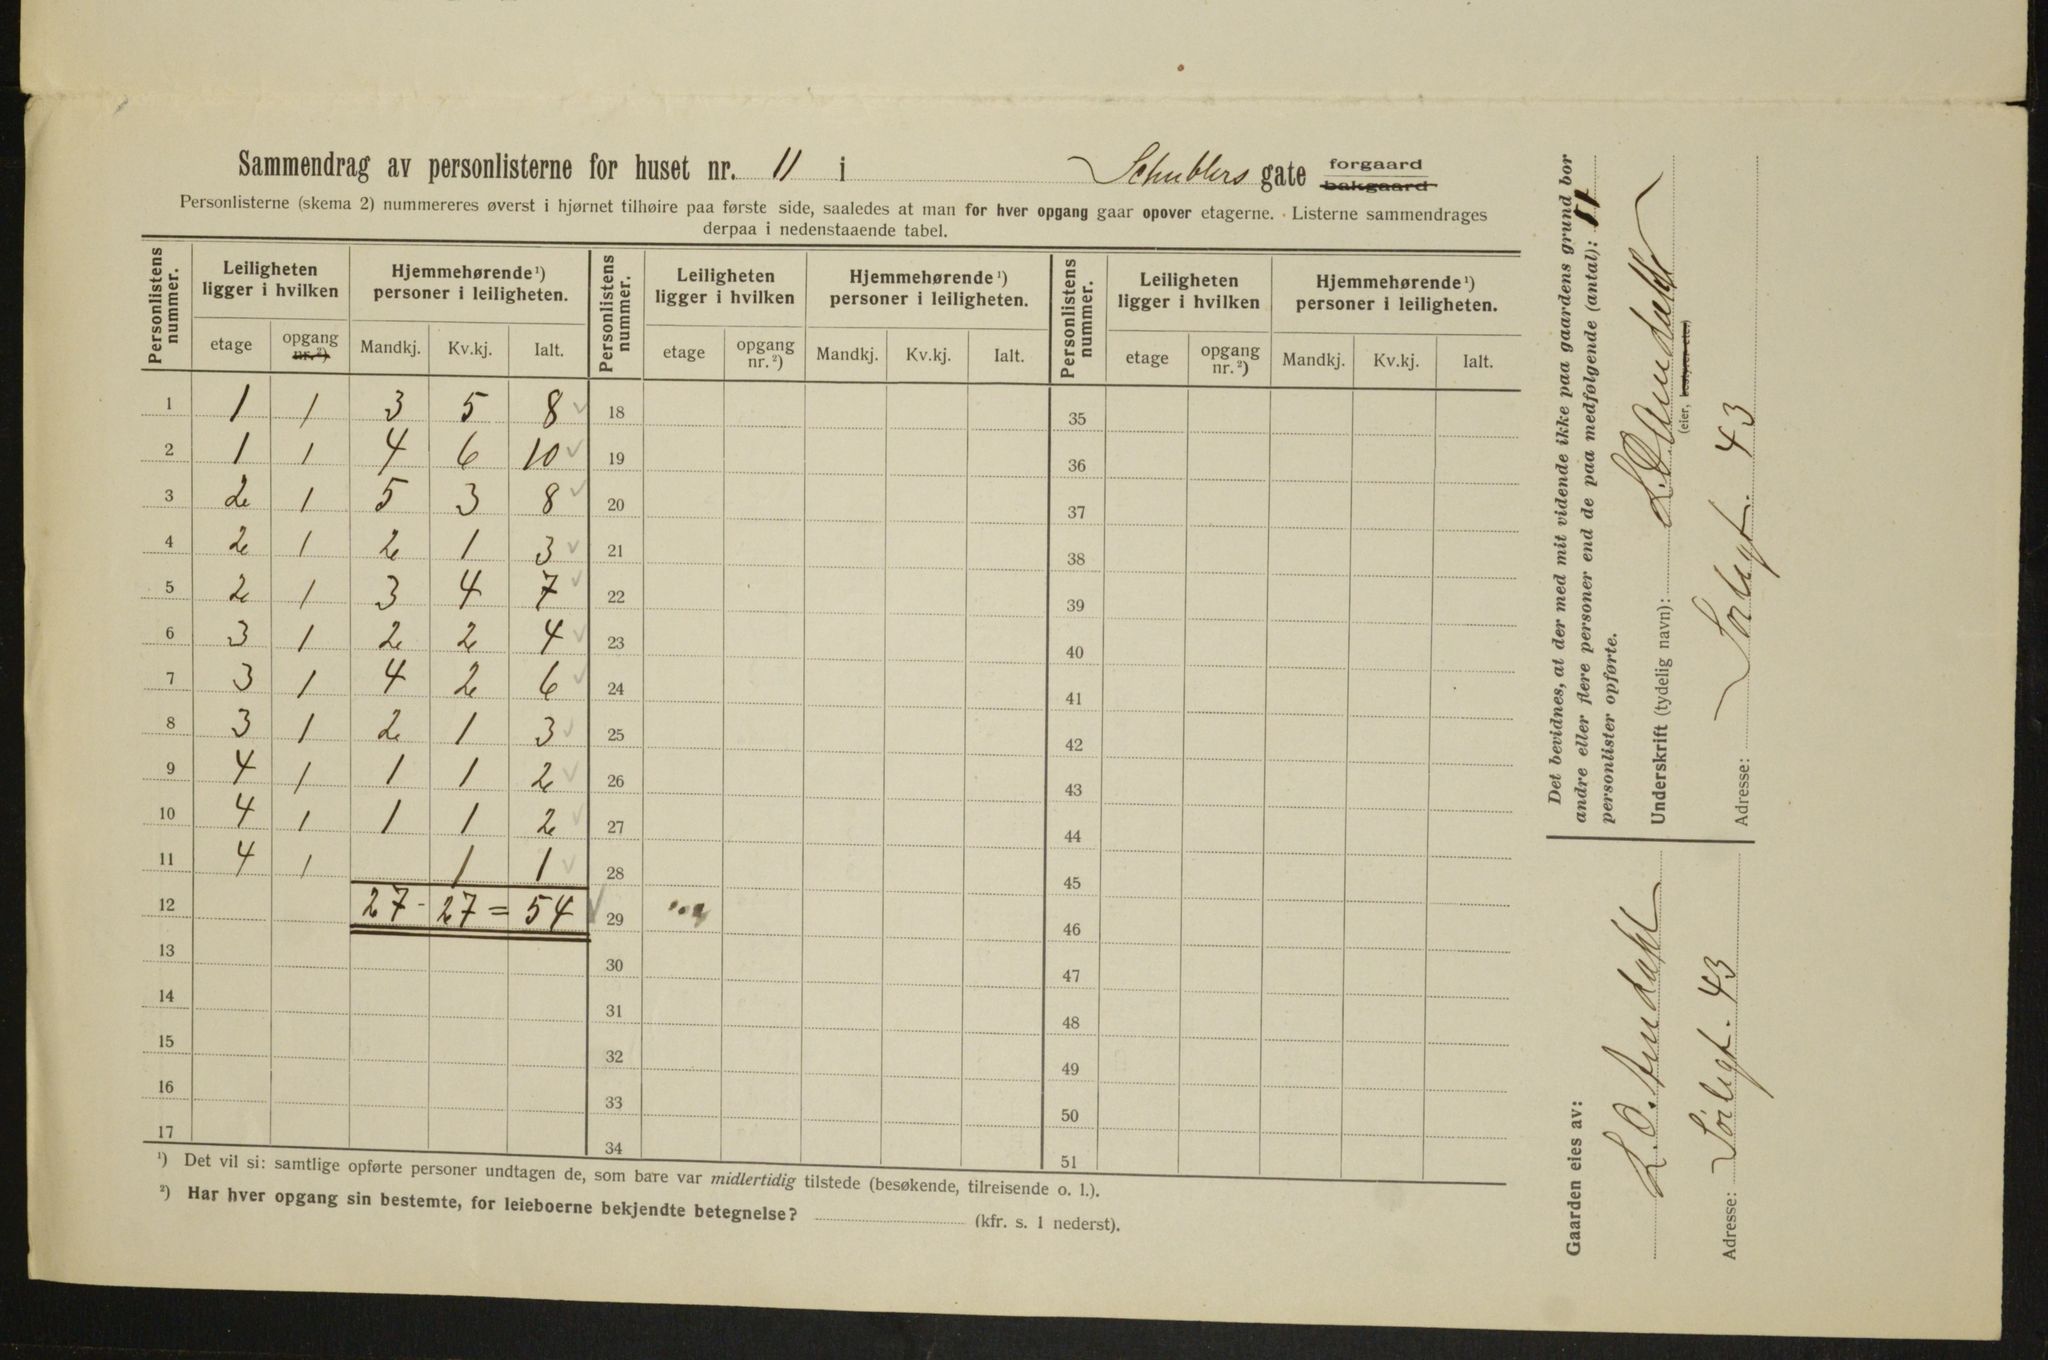 Sammendrag av personlisterne for huset nr. 11 i Schüblers gate forgaard bakgaard
Personlisterne (skema 2) nummereres øverst i hjørnet tilhøire paa første side, saaledes at man for hver opgang gaar opover etagerne. Listerne sammendrages
derpaa i nedenstaaende tabel.
Personlistens nummer. Leiligheten ligger i hvilken Hjemmehørende ¹) personer i leiligheten. Personlistens nummer. Leiligheten ligger i hvilken Hjemmehørende ¹) personer i leiligheten. Personlistens nummer. Leiligheten ligger i hvilken Hjemmehørende ¹) personer i leiligheten.
etage opgang nr. ²) Mandkj. Kv.kj. Ialt. etage opgang nr. ²) Mandkj. Kv.kj. Ialt. etage opgang nr. ²) Mandkj. Kv.kj. Ialt.
1 1 1 3 5 8 18 35
2 1 1 4 6 10 19 36
3 2 1 5 3 8 20 37
4 2 1 2 1 3 21 38
5 2 1 3 4 7 22 39
6 3 1 2 2 4 23 40
7 3 1 4 2 6 24 41
8 3 1 2 1 3 25 42
9 4 1 1 1 2 26 43
10 4 1 1 1 2 27 44
11 4 1 1 1 28 45
12 27 - 27 = 54 29 46
13 30 47
14 31 48
15 32 49
16 33 50
17 34 51
¹) Det vil si: samtlige opførte personer undtagen de, som bare var midlertidig tilstede (besøkende, tilreisende o. l.).
²) Har hver opgang sin bestemte, for leieboerne bekjendte betegnelse? (kfr. s. 1 nederst).
Det bevidnes, at der med mit vidende ikke paa gaardens grund bor
andre eller flere personer end de paa medfølgende (antal): 11
personlister opførte.
Underskrift (tydelig navn): L. O. Aundahl
(eier, bestyrer etc.)
Adresse: Sorligt. 43
Gaarden eies av:
L. O. Aundahl
Adresse: Sörligt. 43